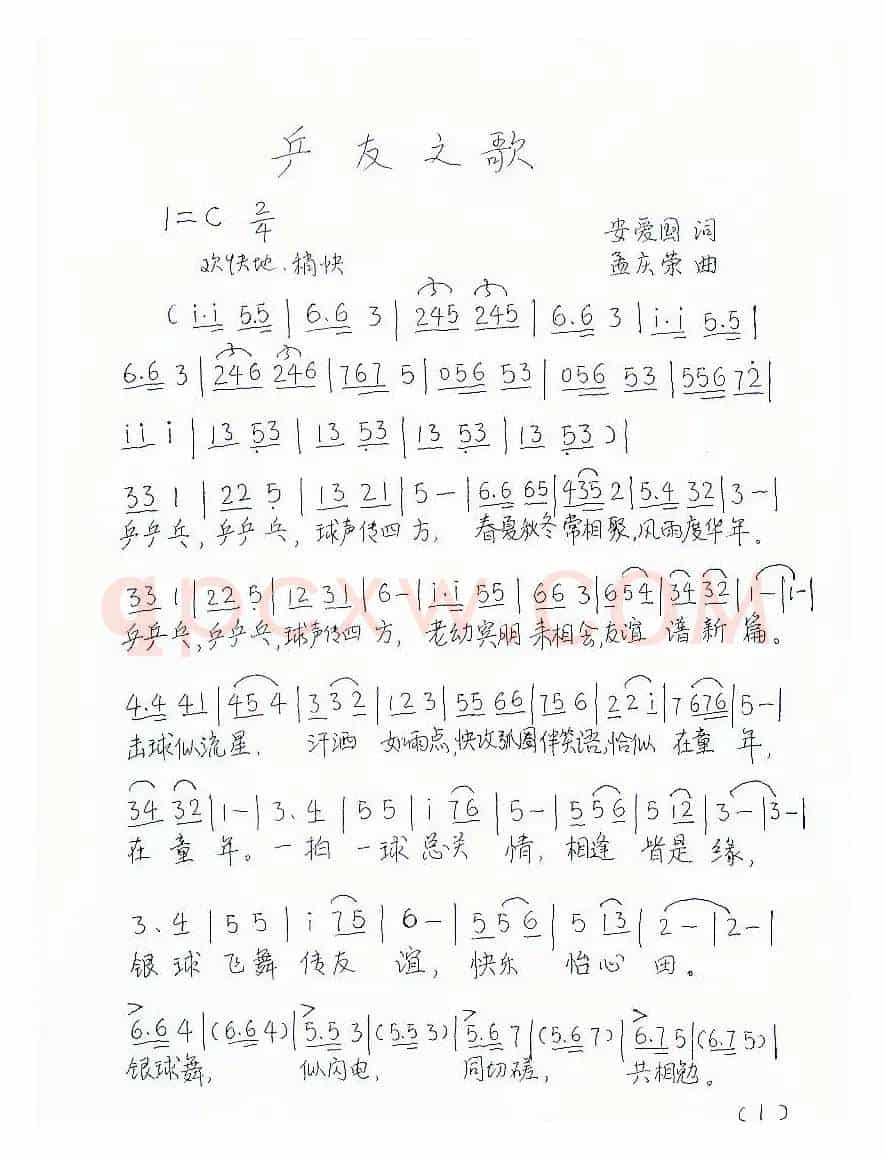 乒友之歌
1=C 2/4
安爱国 词
欢快地、稍快
孟庆荣 曲
(i.i 5.5 | 6.6 3 | 245 245 | 6.6 3 | i.i 5.5 |
6.6 3 | 246 246 | 767 5 | 056 53 | 056 53 | 556 72 |
ii i | 13 53 | 13 53 | 13 53 | 13 53 ) |
33 1 | 22 5 | 13 21 | 5 - | 6.6 65 | 435 2 | 5.4 32 | 3 - |
乒乒乓,乒乒乓,球声传四方, 春夏秋冬常相聚,风雨度华年。
33 1 | 22 5 | 12 31 | 6 - | i.i 55 | 66 3 | 654 | 34 32 | 1 - | 1 - |
qpcxw.COM
乒乒乓,乒乒乓,球声传四方, 老幼宾朋来相会,友谊谱新篇。
4.4 41 | 45 4 | 3 3 2 | 12 3 | 55 66 | 75 6 | 2 2 i | 7 676 | 5 - |
击球似流星, 汗洒如雨点,快攻弧圈伴笑语,恰似在童年,
34 32 | 1 - | 3. 4 | 5 5 | i 76 | 5 - | 5 56 | 5 12 | 3 - | 3 - |
在童年。一拍一球总关情, 相逢皆是缘,
3. 4 | 5 5 | i 75 | 6 - | 5 56 | 5 13 | 2 - | 2 - |
银球飞舞传友谊, 快乐怡心田。
6.6 4 | (6.6 4) | 5.5 3 | (5.5 3) | 5.6 7 | (5.6 7) | 6.7 5 | (6.7 5) |
银球舞, 似闪电, 同切磋, 共相勉。
(1)